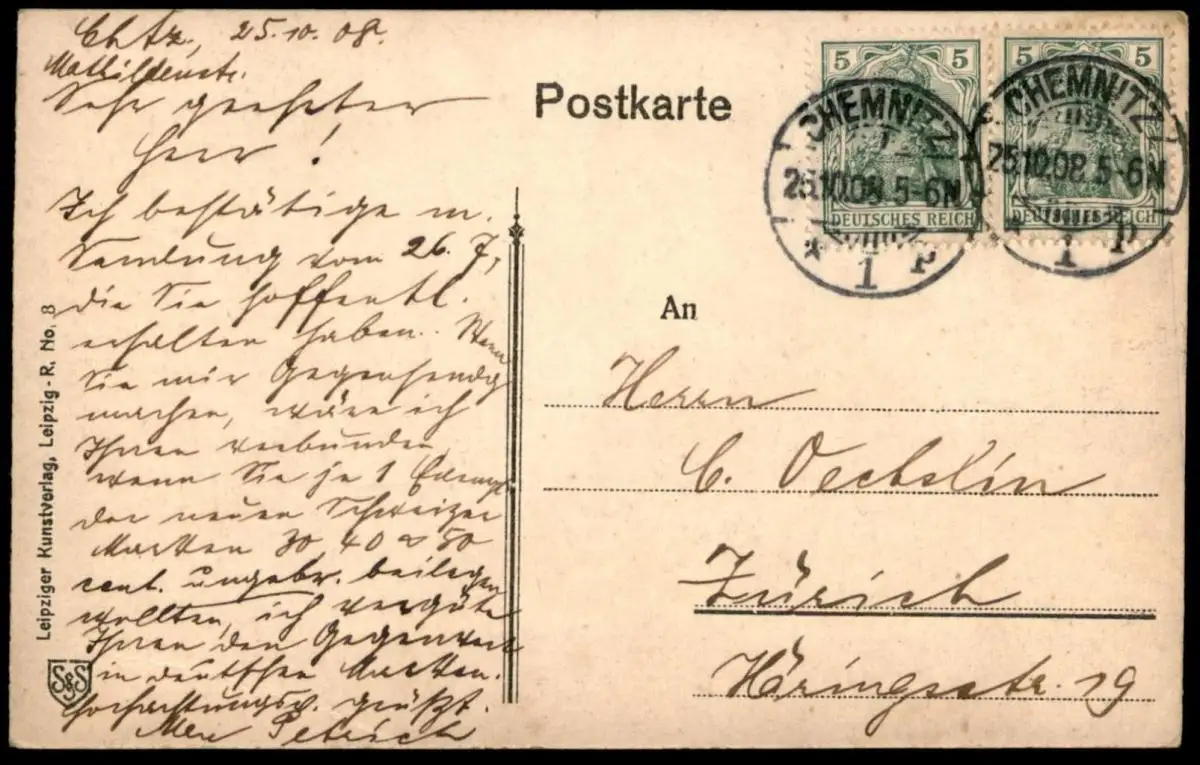 Chtz, 25.10.08.
Mathildenstr.
Sehr geehrter
Herr!
Ich bestätige m.
Sendung vom 26.7,
die Sie hoffentl.
erhalten haben. Wenn
Sie mir Gegensendg
machen, wäre ich
Ihnen verbunden
wenn Sie je 1 Exempl.
der neuen Schweizer
Marken 30 40 & 50
cent. ungebr. beilegen
wollten, ich vergüte
Ihnen den Gegenwert
in deutschen Marken.
Hochachtungsv. grüßt.
Petrich
Leipziger Kunstverlag, Leipzig - R. No. 8
S&S
Postkarte
5 5
DEUTSCHES REICH
5 5
DEUTSCHES REICH
CHEMNITZ
25.10.08. 5-6N
* 1 P
CHEMNITZ
25.10.08. 5-6N
* 1 P
An
Herrn
C. Oechslin
Zürich
Höringsstr. 19